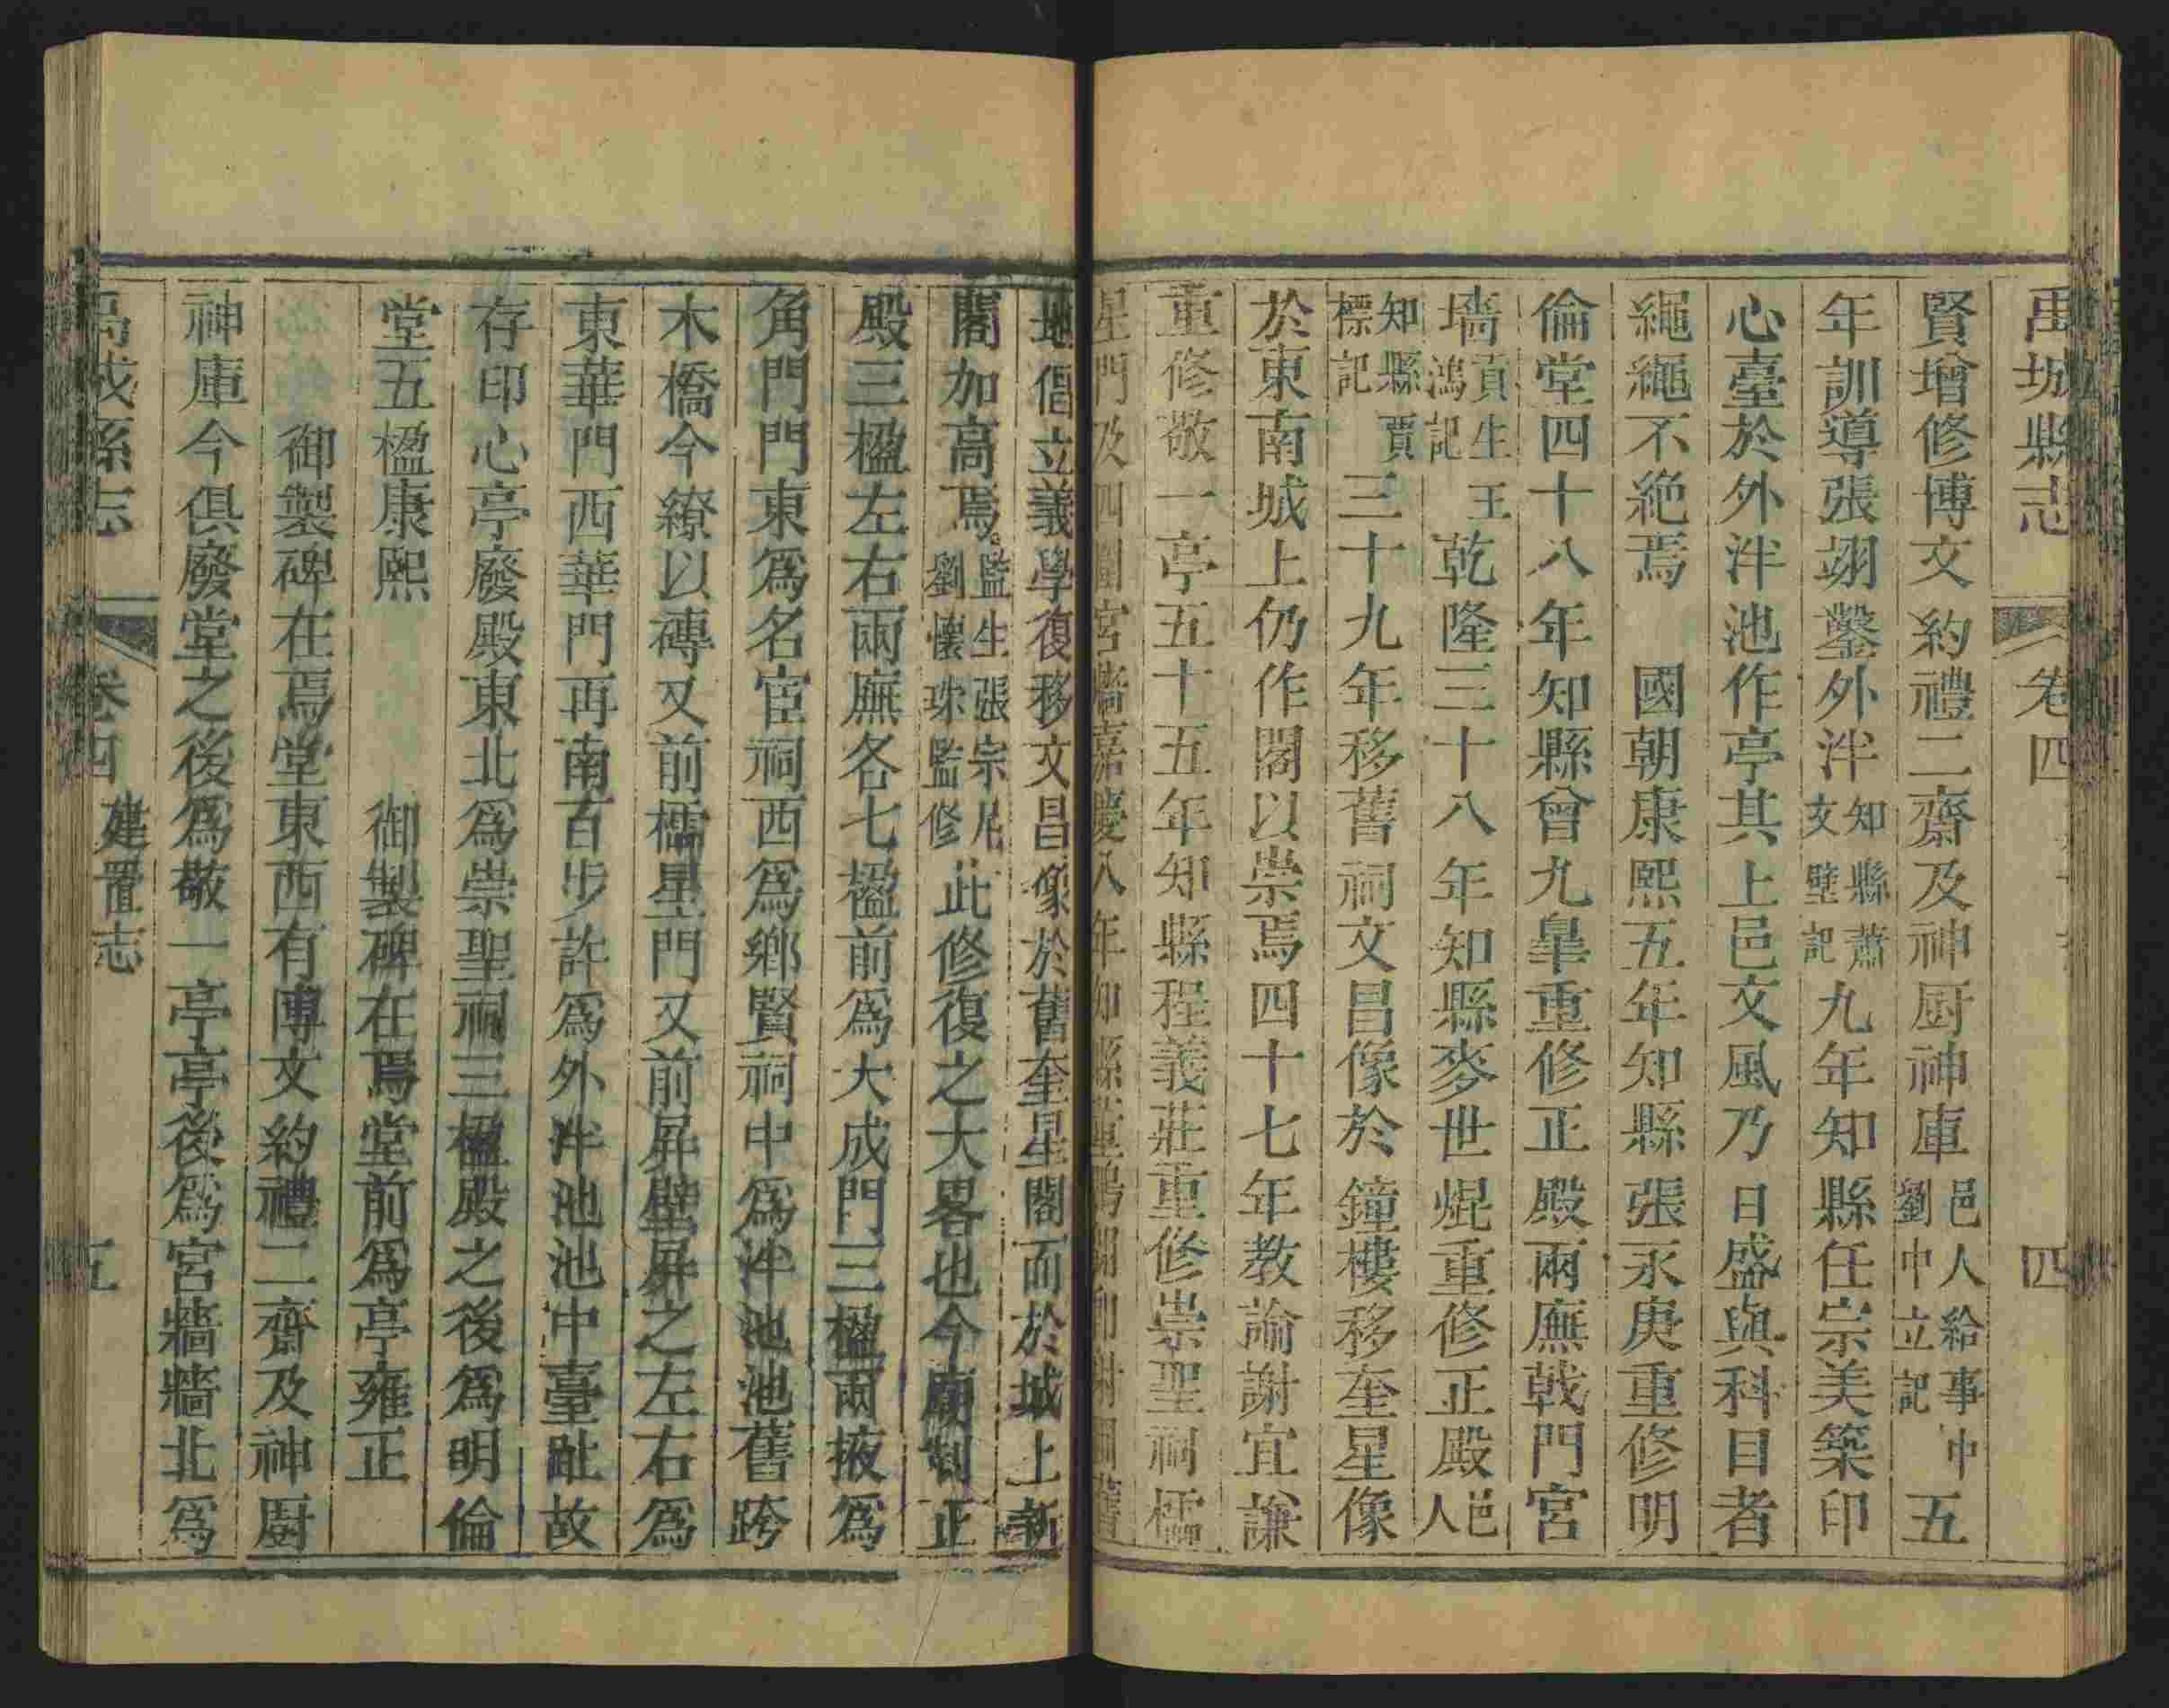 禹城縣志 卷四 四
賢增修博文約禮二齋及神厨神庫邑人給事中劉中立記五
年訓導張翊鑿外泮知縣蕭文璧記九年知縣任宗美築印
心臺於外泮池作亭其上邑文風乃日盛與科目者
繩繩不絶焉 國朝康熙五年知縣張永庚重修明
倫堂四十八年知縣曾九皐重修正殿兩廡戟門宮
墻貢生王鴻記乾隆三十八年知縣麥世焜重修正殿邑人
知縣賈標記三十九年移舊祠文昌像於鐘樓移奎星像
於東南城上仍作閣以崇焉四十七年教諭謝宜謙
重修敬一亭五十五年知縣程義莊重修崇聖祠櫺
星門及四圍宮墻嘉慶八年知縣董鵬翱
地倡立義學復移文昌像於舊奎星閣而於城上新
閣加高焉監生張宗尼劉懷珠監修此修復之大畧也今廟制正
殿三楹左右兩廡各七楹前爲大成門三楹兩掖爲
角門門東爲名宦祠西爲鄕賢祠中爲泮池池舊跨
木橋今繚以磚又前櫺星門又前屏壁屏之左右爲
東華門西華門再南百步許爲外泮池池中臺趾故
存印心亭廢殿東北爲崇聖祠三楹殿之後爲明倫
堂五楹康熙 御製碑在焉堂前爲亭雍正
御製碑在焉堂東西有博文約禮二齋及神厨
神庫今俱廢堂之後爲敬一亭亭後爲宮牆牆北爲
禹城縣志 卷四 建置志 五